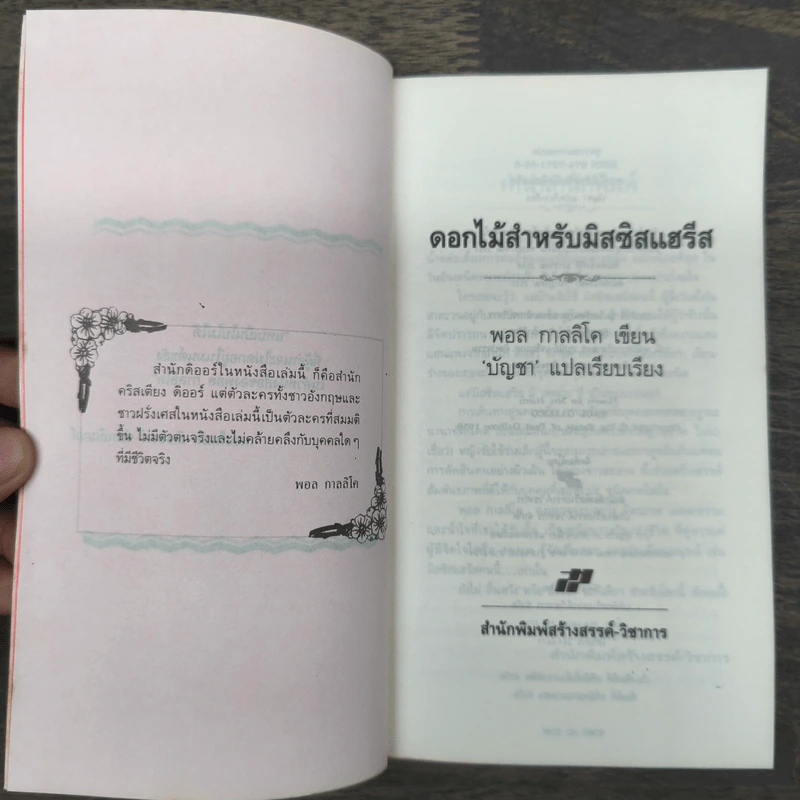 สำนักดิออร์ในหนังสือเล่มนี้ ก็คือสำนัก
คริสเตียง ดิออร์ แต่ตัวละครทั้งชาวอังกฤษและ
ชาวฝรั่งเศสในหนังสือเล่มนี้เป็นตัวละครที่สมมติ
ขึ้น ไม่มีตัวตนจริงและไม่คล้ายคลึงกับบุคคลใด ๆ
ที่มีชีวิตจริง
พอล กาลลิโค
ดอกไม้สำหรับมิสซิสแฮรีส
พอล กาลลิโค เขียน
'บัญชา' แปลเรียบเรียง
สำนักพิมพ์สร้างสรรค์-วิชาการ